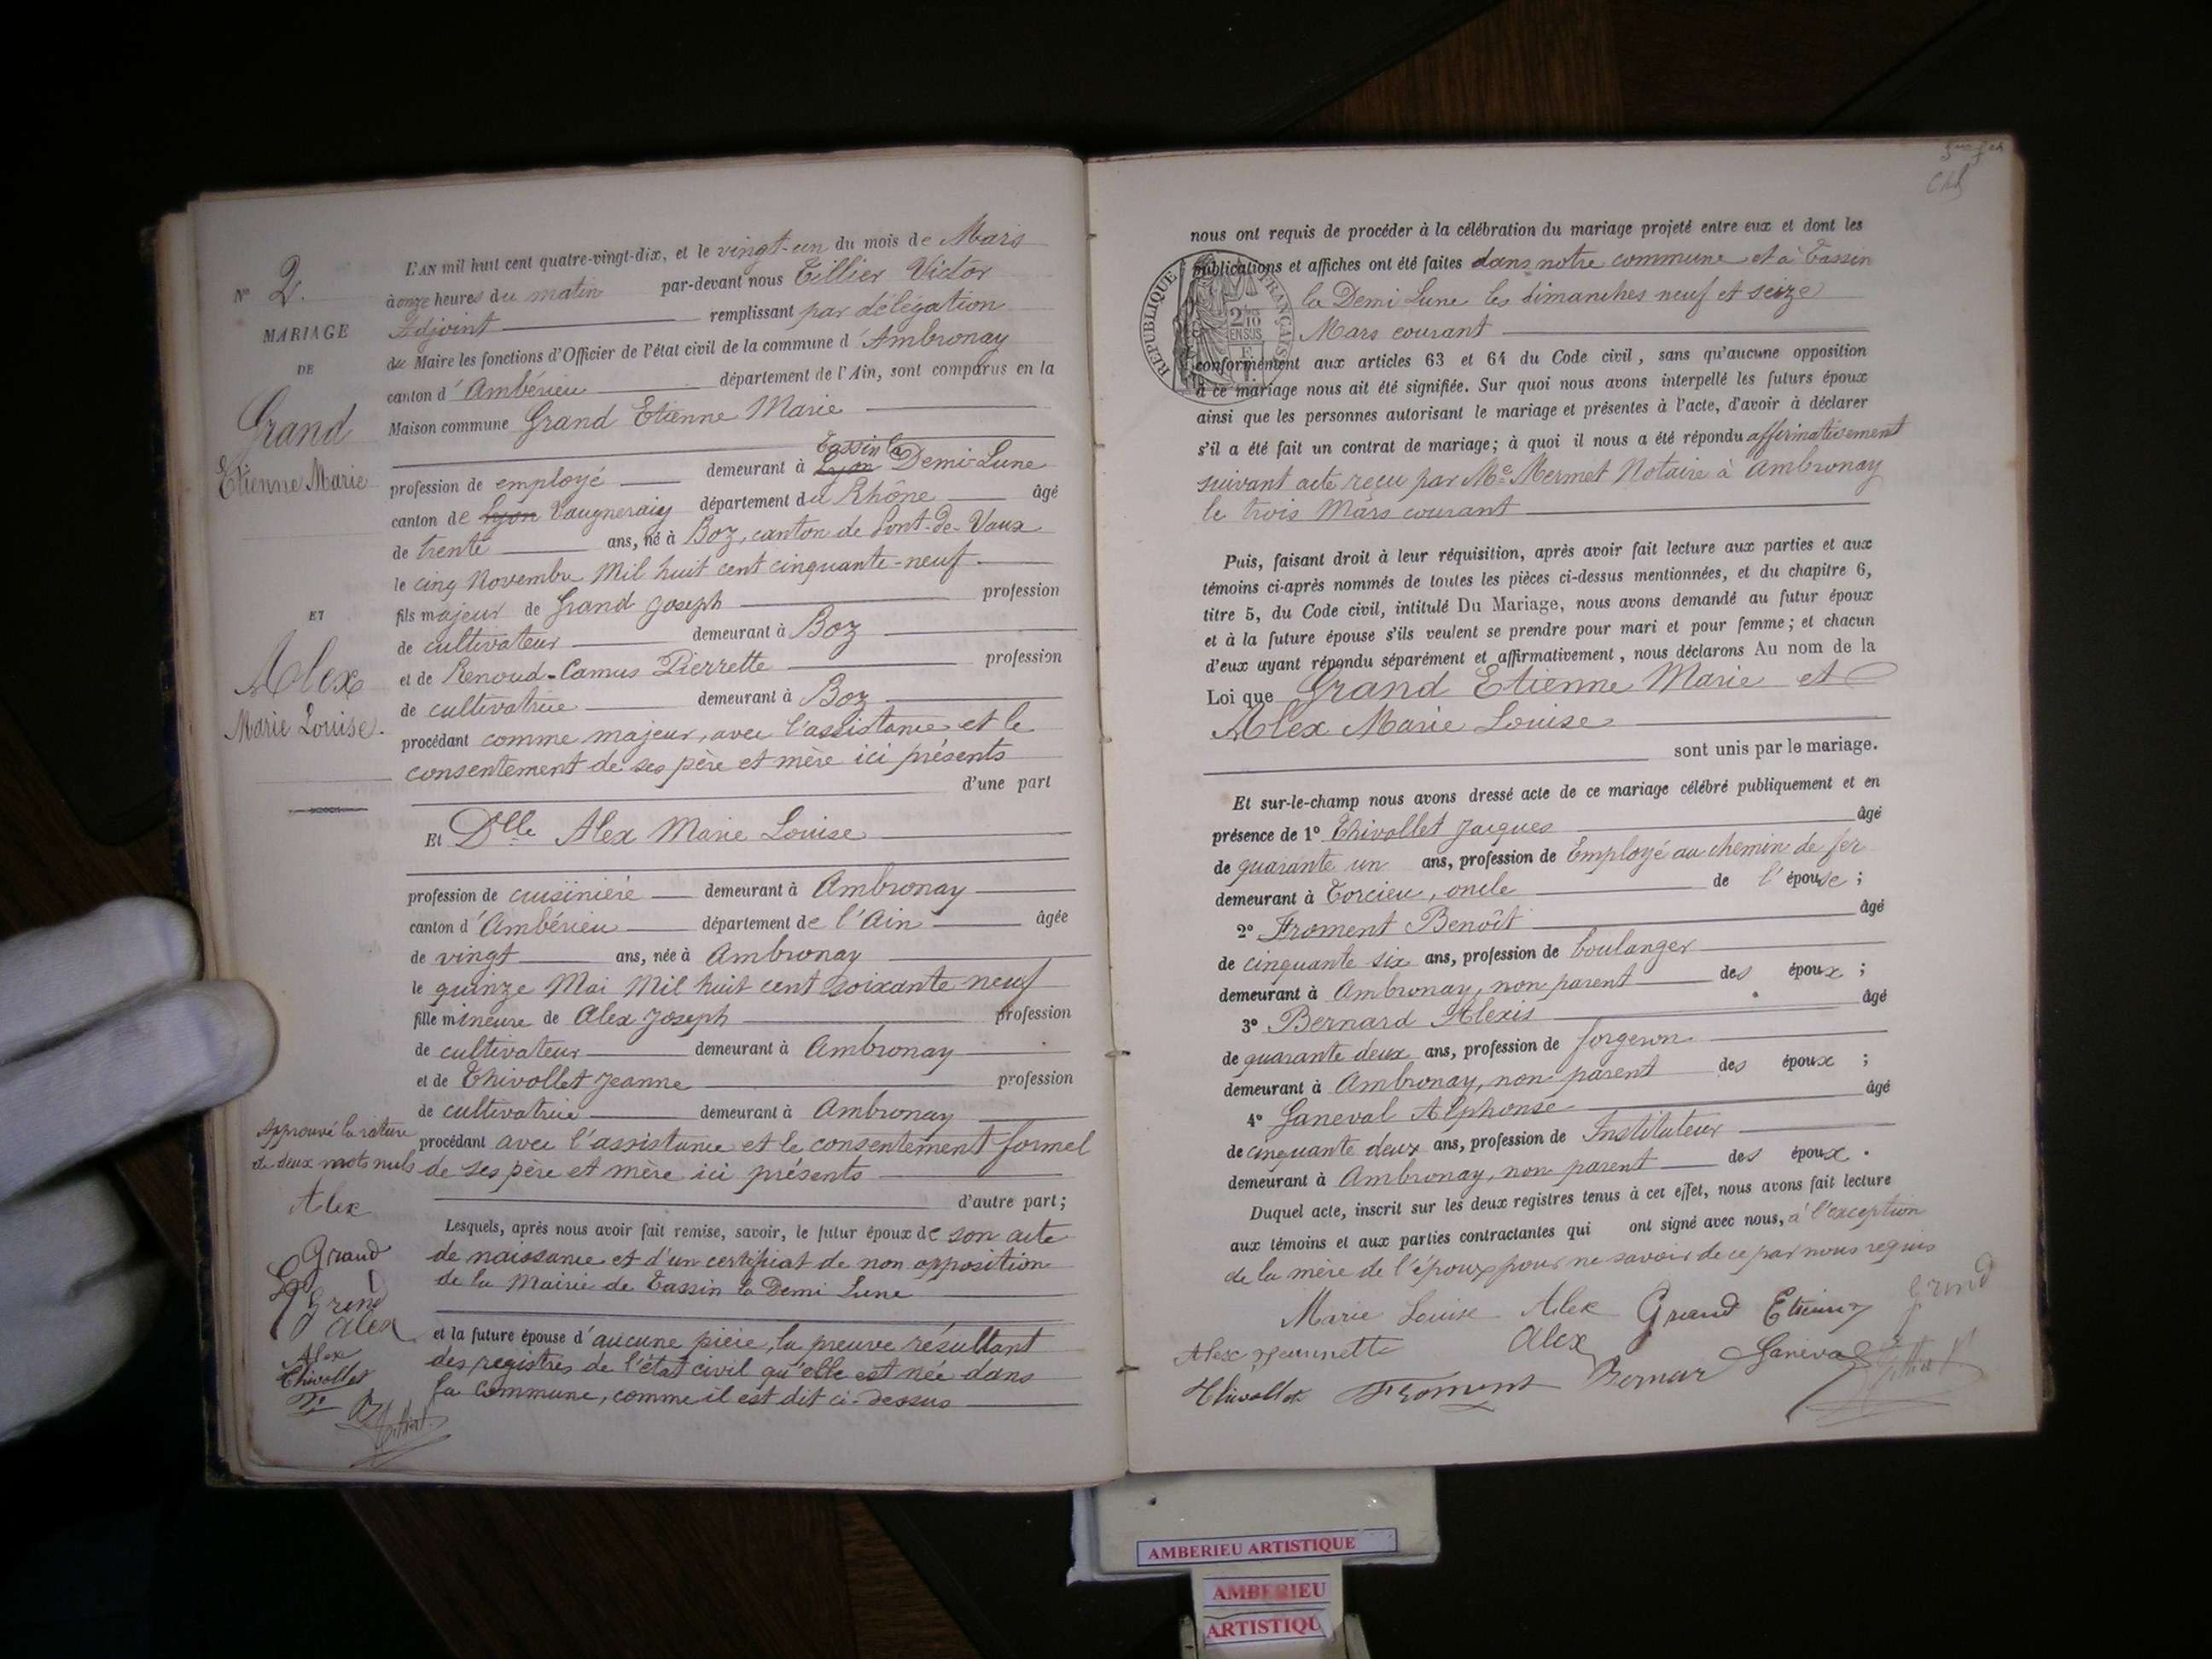 N° 2.
MARIAGE
DE
Grand
Etienne Marie
ET
Alex
Marie Louise.
L'AN mil huit cent quatre-vingt-dix, et le vingt-un du mois de Mars
à onze heures du matin par-devant nous Tillier Victor
Adjoint remplissant par délégation
du Maire les fonctions d'Officier de l'état civil de la commune d'Ambronay
canton d'Ambérieu département de l'Ain, sont comparus en la
Maison commune Grand Etienne Marie
Tassin la
profession de employé demeurant à Lyon Demi-Lune
canton de Lyon Vaugneray département du Rhône âgé
de trente ans, né à Boz, canton de Pont-de-Vaux
le cinq Novembre Mil huit cent cinquante-neuf
fils majeur de Grand Joseph profession
de cultivateur demeurant à Boz
et de Renoud-Camus Pierrette profession
de cultivatrice demeurant à Boz
procédant comme majeur, avec l'assistance et le
consentement de ses père et mère ici présents
d'une part
Et Dlle Alex Marie Louise
profession de cuisinière demeurant à Ambronay
canton d'Ambérieu département de l'Ain âgée
de vingt ans, née à Ambronay
le quinze Mai Mil huit cent soixante neuf
fille mineure de Alex Joseph profession
de cultivateur demeurant à Ambronay
et de Thivollet Jeanne profession
de cultivatrice demeurant à Ambronay
procédant avec l'assistance et le consentement formel
de ses père et mère ici présents
d'autre part;
Approuvé la rature
de deux mots nuls
Alex
Grand
Grand
Alex
Alex
Thivollet
Lesquels, après nous avoir fait remise, savoir, le futur époux de son acte
de naissance et d'un certificat de non opposition
de la Mairie de Tassin la Demi Lune
et la future épouse d'aucune pièce, la preuve résultant
des registres de l'état civil qu'elle est née dans
la Commune, comme il est dit ci-dessus
nous ont requis de procéder à la célébration du mariage projeté entre eux et dont les
publications et affiches ont été faites dans notre commune et à Tassin
la Demi Lune les dimanches neuf et seize
Mars courant
REPUBLIQUE FRANÇAISE
2/10 EN SUS
conformément aux articles 63 et 64 du Code civil, sans qu'aucune opposition
à ce mariage nous ait été signifiée. Sur quoi nous avons interpellé les futurs époux
ainsi que les personnes autorisant le mariage et présentes à l'acte, d'avoir à déclarer
s'il a été fait un contrat de mariage; à quoi il nous a été répondu affirmativement
suivant acte reçu par Me Mermet Notaire à Ambronay
le trois Mars courant
Puis, faisant droit à leur réquisition, après avoir fait lecture aux parties et aux
témoins ci-après nommés de toutes les pièces ci-dessus mentionnées, et du chapitre 6,
titre 5, du Code civil, intitulé Du Mariage, nous avons demandé au futur époux
et à la future épouse s'ils veulent se prendre pour mari et pour femme; et chacun
d'eux ayant répondu séparément et affirmativement, nous déclarons Au nom de la
Loi que Grand Etienne Marie et
Alex Marie Louise
sont unis par le mariage.
Et sur-le-champ nous avons dressé acte de ce mariage célébré publiquement et en
présence de 1° Thivollet Jacques âgé
de quarante un ans, profession de Employé au chemin de fer
demeurant à Torcieu, oncle de l'épouse;
2° Froment Benoît âgé
de cinquante six ans, profession de boulanger
demeurant à Ambronay, non parent des époux;
3° Bernard Alexis âgé
de quarante deux ans, profession de forgeron
demeurant à Ambronay, non parent des époux;
4° Ganeval Alphonse âgé
de cinquante deux ans, profession de Instituteur
demeurant à Ambronay, non parent des époux.
Duquel acte, inscrit sur les deux registres tenus à cet effet, nous avons fait lecture
aux témoins et aux parties contractantes qui ont signé avec nous, à l'exception
de la mère de l'époux pour ne savoir de ce par nous requis
Marie Louise Alex Grand Etienne Grand
Alex Jeannette Alex Ganeval
Thivollet Froment Bernar
AMBERIEU ARTISTIQUE
AMBERIEU
ARTISTIQU